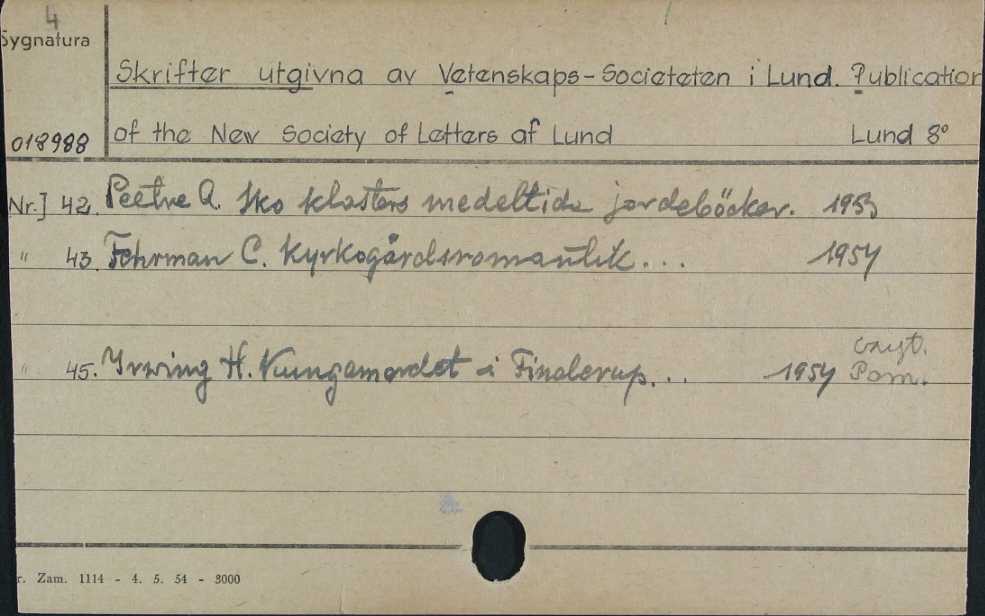 4
Sygnatura
Skrifter utgivna av Vetenskaps-Societeten i Lund. Publication
018988 of the New Society of Letters af Lund Lund 8°
Nr.] 42. Peetre A. Sko klosters medeltida jordeböcker. 1953
" 43. Fehrman C. Kyrkogårdsromantik... 1954
" 45. Yrwing H. Kungamordet i Finderup... 1954 czyt. Pom.
r. Zam. 1114 - 4. 5. 54 - 3000